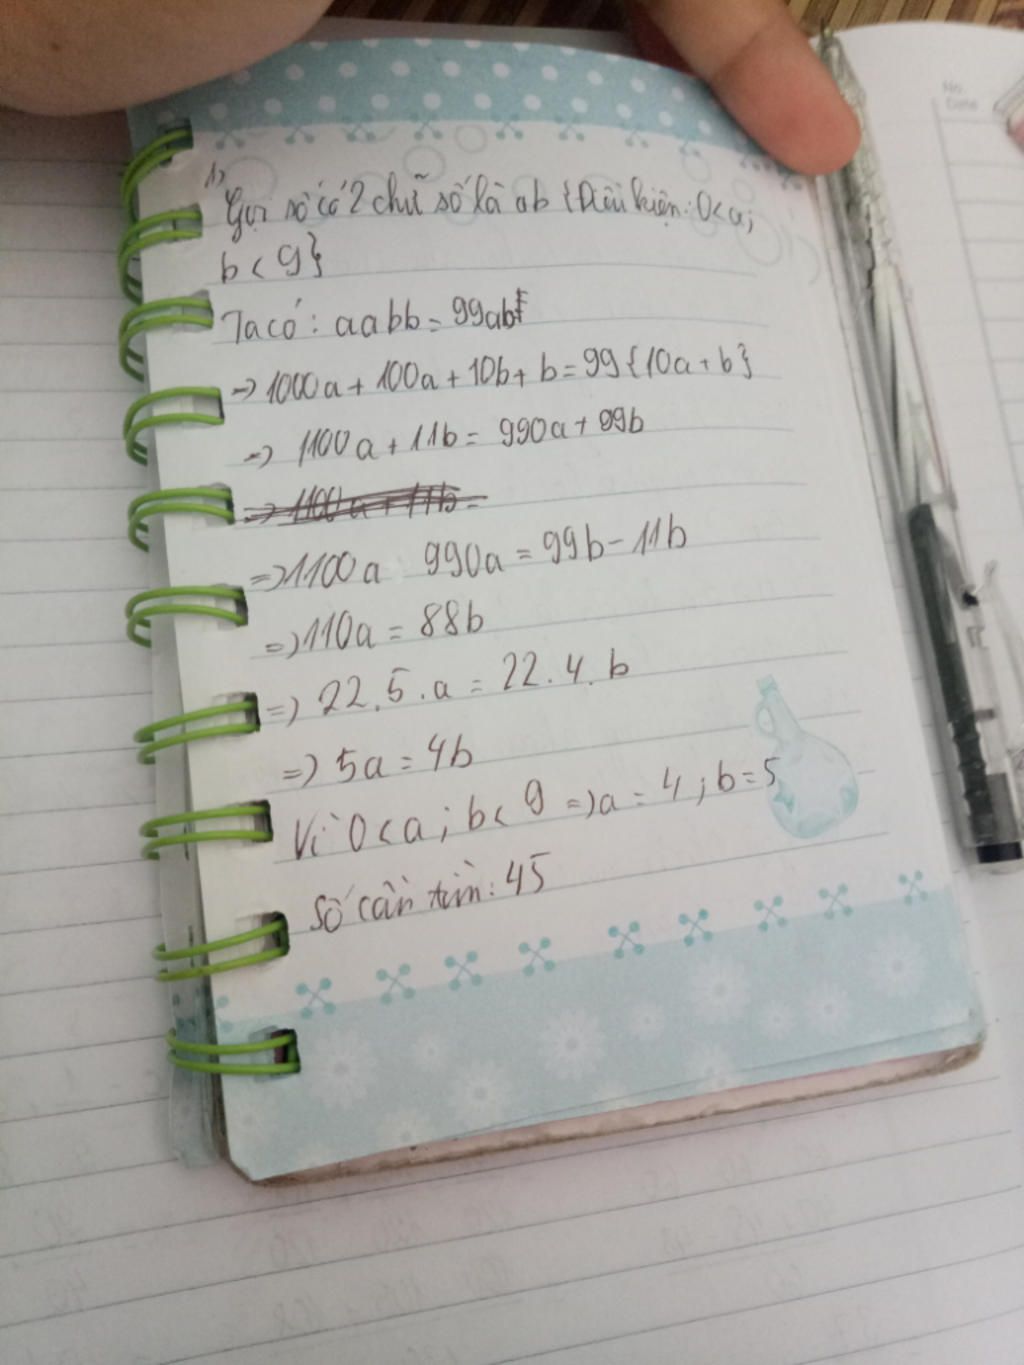 No.
Date
1)
Gọi số có 2 chữ số là ab {Điều kiện: 0<a;
b < 9}
Ta có: aabb = 99ab
=> 1000a + 100a + 10b + b = 99 {10a + b}
=> 1100a + 11b = 990a + 99b
=> 1100a + 11b =
=> 1100a 990a = 99b - 11b
=> 110a = 88b
=> 22.5.a = 22.4.b
=> 5a = 4b
Vì 0 < a; b < 9 => a = 4; b = 5
Số cần tìm: 45